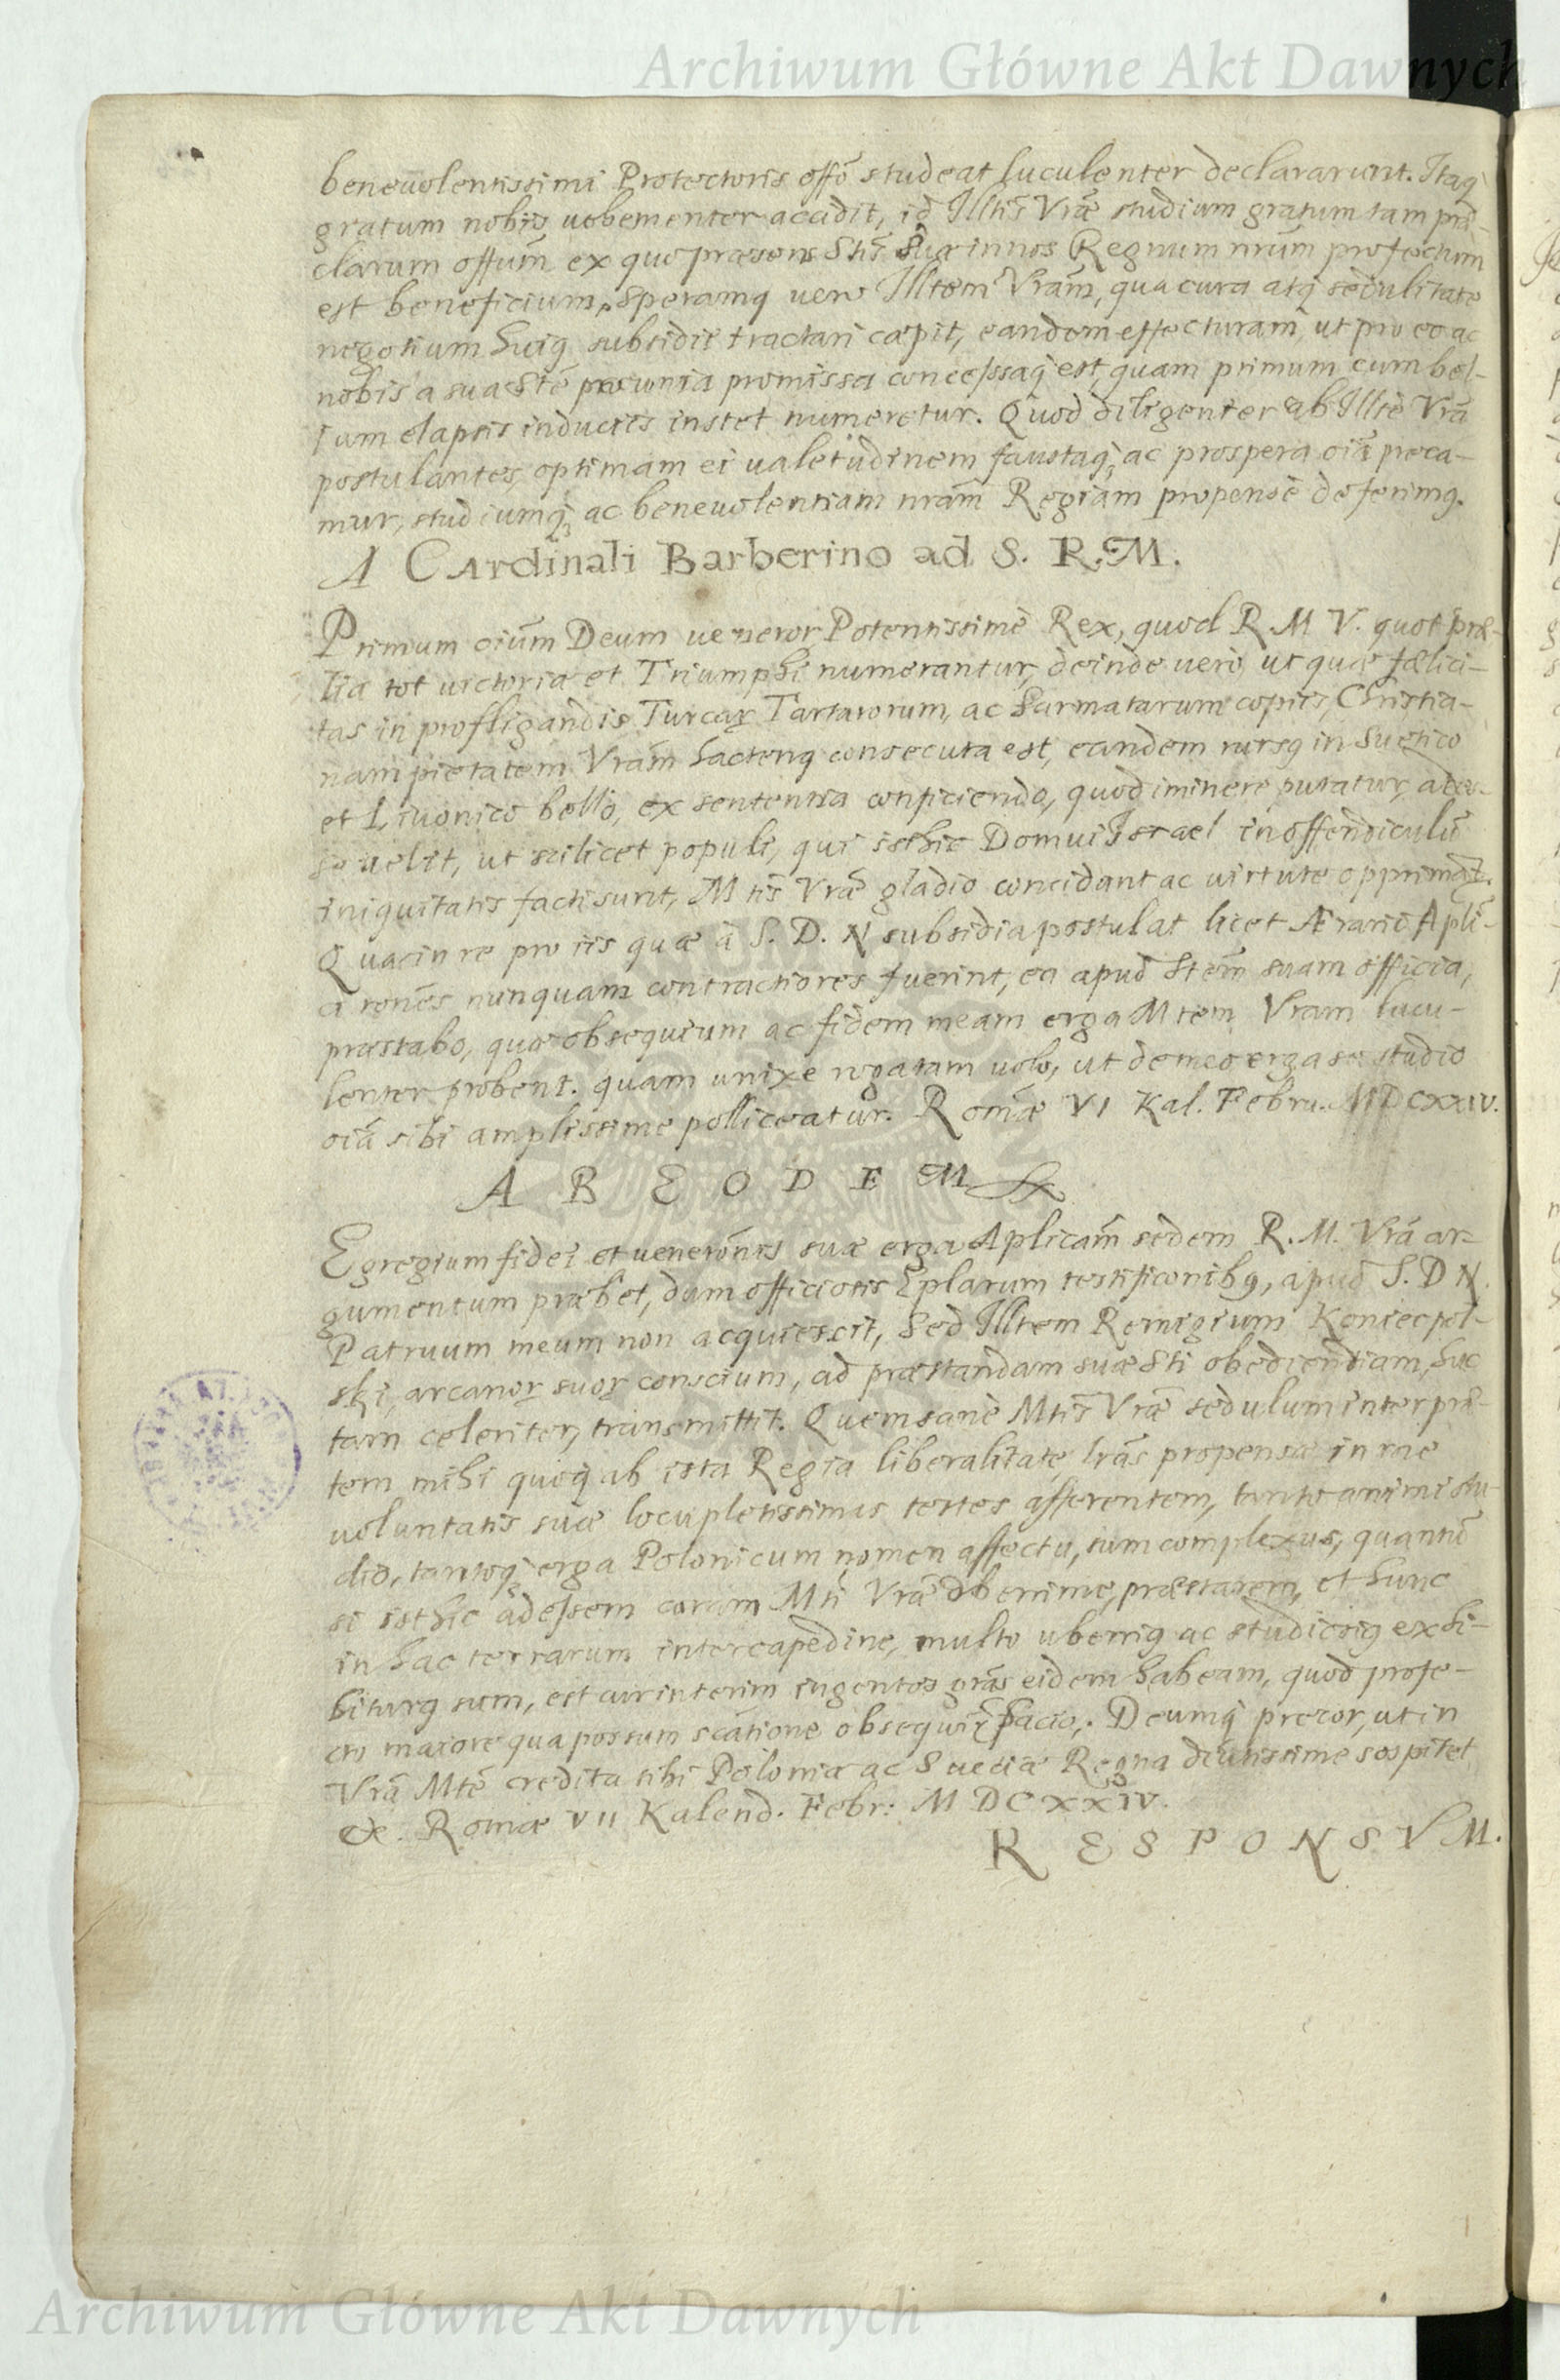 Archiwum Główne Akt Dawnych
benevolentissimi Protectoris offõ studeat luculenter declararunt. Itaq
gratum nobis uehementer accidit, id Illtis Vræ studium gratum tam præ-
clarum offum ex quo præsens Stis Suæ in nos Regnum nrum profectum
est beneficium, Speramq uero Illtem Vram, qua cura atq sedulitate
negotium huiq subsidii tractari cæpit, eandem effecturam, ut pro eo ac
nobis a sua Ste pecunia promissa concessaq est, quam primum cum bel-
lum elapsis induciis instet numeretur. Quod diligenter ab Illte Vra
postulantes, optimam ei ualetudinem faustaq, ac prospera oia preca-
mur, studiumq, ac beneuolentiam nram Regiam propense deferimq.
A CArdinali Barberino ad S. R. M.
Primum oium Deum ueneror, Potentissime Rex, quod R M V. quot præ-
lia tot uictoriæ et Triumphi numerantur, deinde uero, ut quæ fælici-
tas in profligandis Turcaꝝ Tartarorum, ac Sarmatarum copiis, Christia-
nam pietatem Vram hactenq consecuta est, eandem rursq in Suetico
et Liuonico bello, ex sententia conficiendo, quod iminere putatur, ades-
se uelit, ut scilicet populi, qui isthic Domui Israel in offendiculu
iniquitatis facti sunt, Mtis Vræ gladio concidant ac uirtute opprimant.
Qua in re pro iis quæ à S. D. N subsidia postulat licet Ærario Apli-
ci rones nunquam contractiores fuerint, ea apud Stem suam officia,
præstabo, quæ obsequium ac fidem meam erga Mtem Vram lucu-
lenter probent. quam unixe rogatam uolo, ut de meo erga se studio
oia sibi amplissime polliceatur. Romæ VI Kal. Febru. MDCXXIV.
A B E O D E M
Egregium fidei et ueneronis suæ erga Aplicam sedem R. M. Vra ar-
gumentum præbet, dum officiosis Eplarum testificonibq, apud S. D N.
Patruum meum non acquiescit, Sed Illtem Remigium Koniecpol-
ski, arcanoꝝ suoꝝ conscium, ad præstandam suæ Sti obedientiam, huc
tam celeriter, transmittit. Quem sane Mtis Vræ sedulum interpre-
tem mihi quoq ab ista Regia liberalitate, lras propensæ in me
uoluntatis suæ locupletissimas testes afferentem, tanto animi stu-
dio, tantoq erga Polonicum nomen affectu, sum complexus, quanto
si isthic adessem coram Mti Vræ uberrime, præstarem, et hunc
in hac terrarum intercapedine, multo uberiq ac studiosiq exhi-
biturq sum, est cur interim ingentes gras eidem habeam, quod profe-
cto maiore qua possum obsequii facio. Deumq precor, ut in
Vra Mte credita sibi Poloniæ ac Sueciæ Regna diutissime sospitet
&. Romæ VII Kalend. Febr: M DCXXIV.
R E S P O N S V M.
Archiwum Główne Akt Dawnych